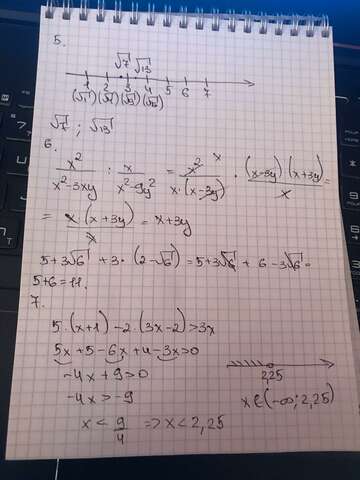 5.
√7 √13
1 2 3 4 5 6 7
(√1) (√4) (√9) (√16)
√7 ; √13
6.
x²/(x²-3xy) : x/(x²-9y²) = x²/(x·(x-3y)) · (x-3y)(x+3y)/x =
= x(x+3y)/x = x+3y
5+3√6 + 3·(2-√6) = 5+3√6 + 6-3√6 =
5+6=11.
7.
5·(x+1) -2·(3x-2)>3x
5x+5-6x+4-3x>0
-4x+9>0
2,25
-4x>-9
x∈(-∞; 2,25)
x < 9/4 => x<2,25